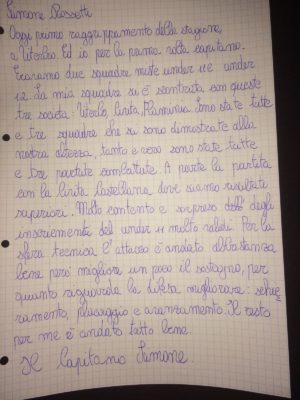 Simone Rossetti
Oggi primo raggruppamento della stagione,
a Viterbo. Ed io per la prima volta capitano.
Eravamo due squadre miste under 11 e under
12. La mia squadra si è scontrata con queste
tre società. Viterbo, Civita, Flaminia. Sono state tutte
e tre squadre che si sono dimostrate alla
nostra altezza, tanto è vero sono state tutte
e tre partite combattute. A parte la partita
con la Civita Castellana dove siamo risultati
superiori. Molto contento e sorpreso dell' degli
inserimenti del under 11 molto validi. Per la
sfera tecnica l'attacco è andato abbastanza
bene però migliorare un poco il sostegno, per
quanto riguarda la difesa migliorare: schie
ramento, placcaggio e avanzamento. Il resto
per me è andato tutto bene.
Il Capitano Simone.